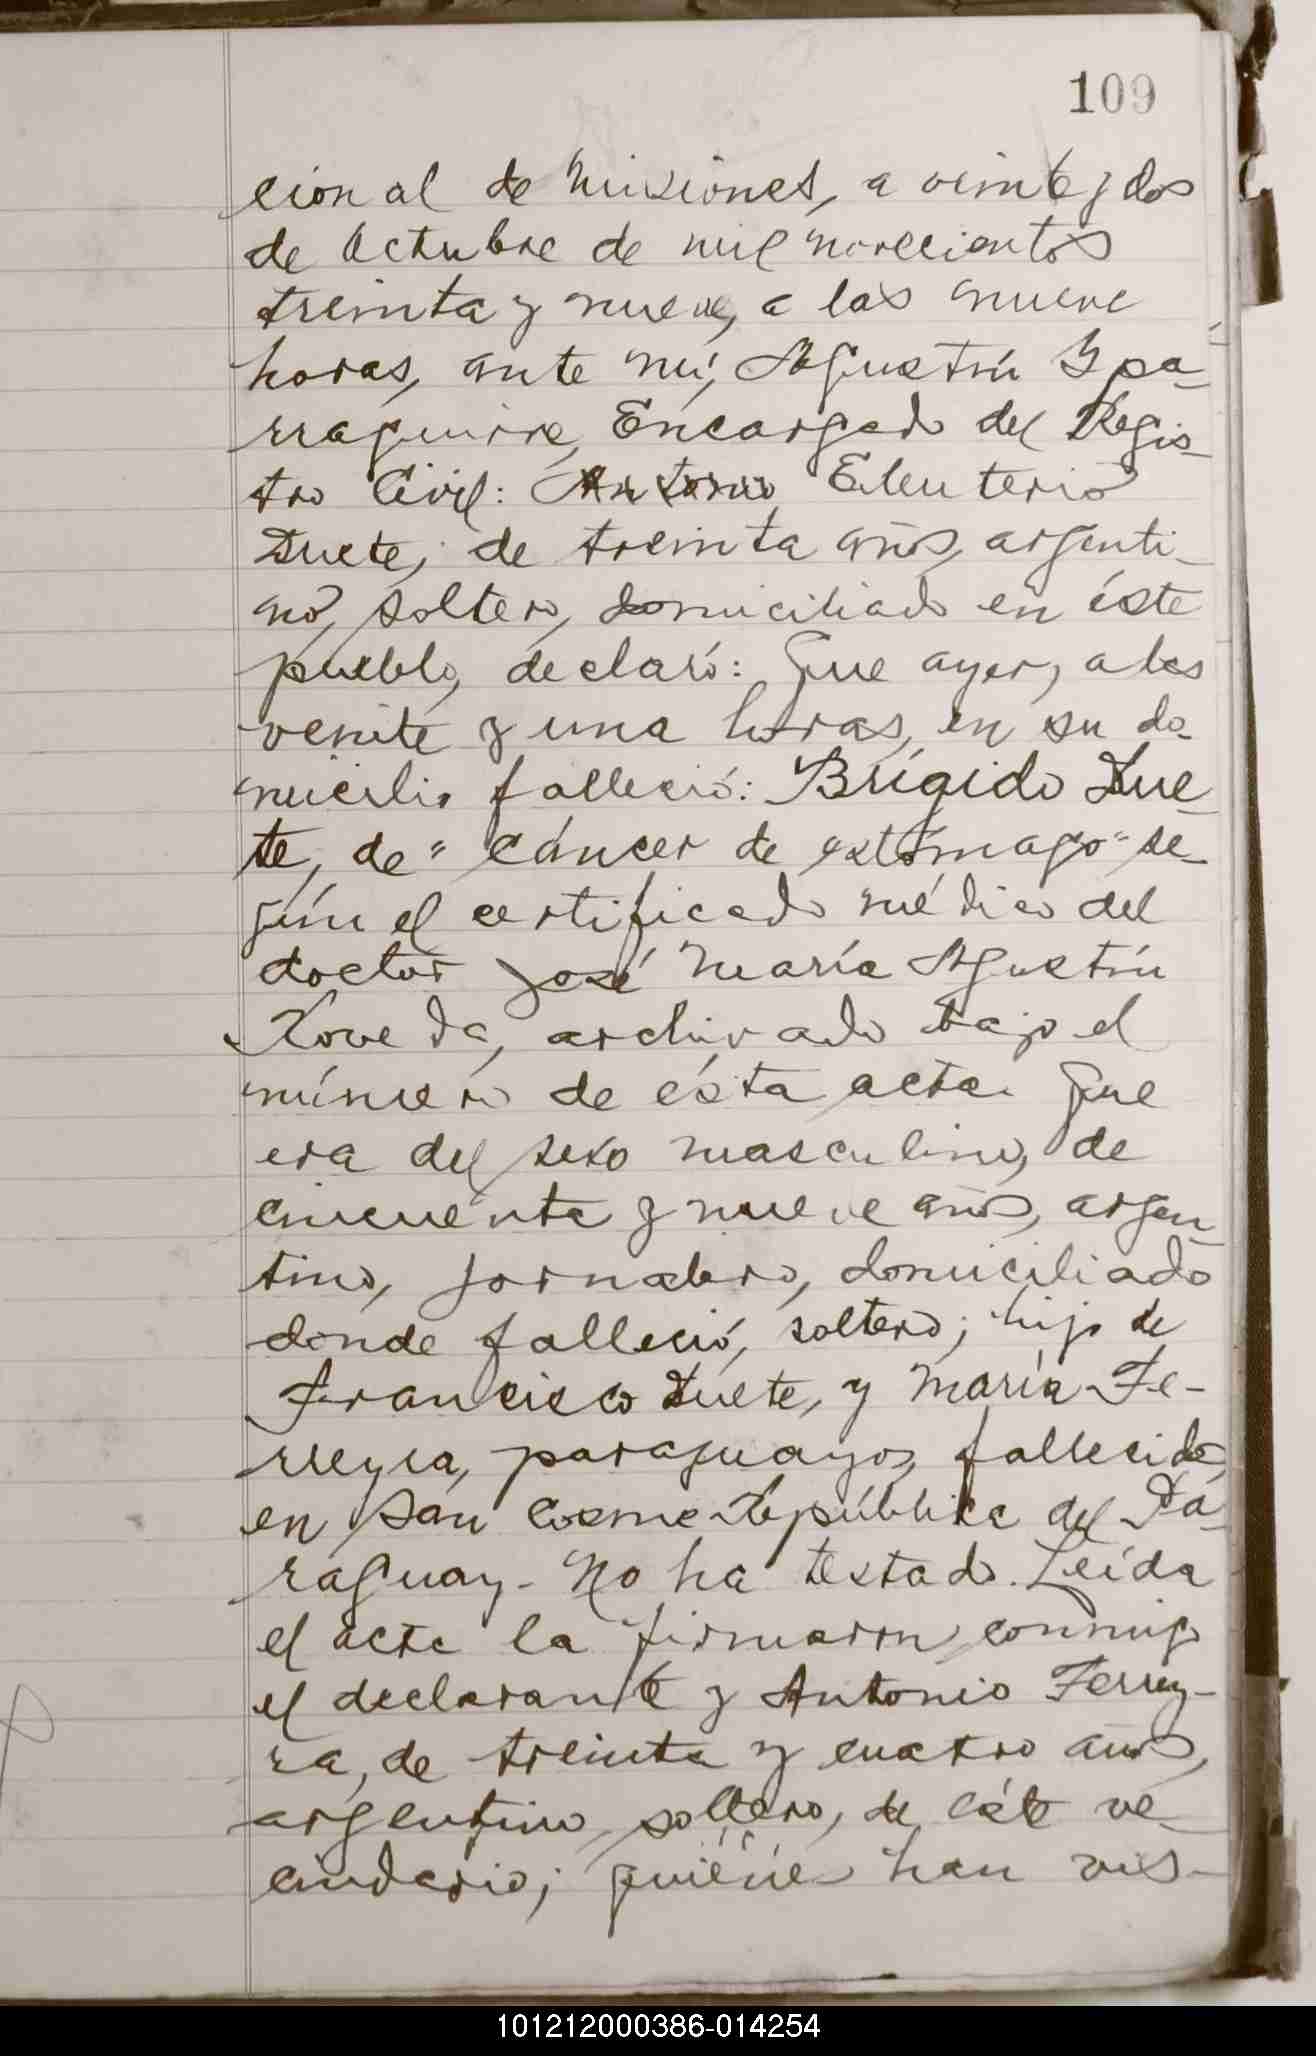 109
cional de Misiones, a veinte y dos
de Octubre de mil novecientos
treinta y nueve, a las nueve
horas, ante mí, Agustín Ypa-
rraguirre, Encargado del Regis-
tro Civil: Antonio Eleuterio
Duete, de treinta años, argenti-
no, soltero, domiciliado en éste
pueblo, declaró: Que ayer, a las
veinte y una horas, en su do-
micilio falleció: Brígido Due-
te, de "cáncer de estómago" se-
gún el certificado médico del
doctor José María Agustín
archivado bajo el
número de ésta acta. Que
era del sexo masculino, de
cincuenta y nueve años, argen-
tino, jornalero, domiciliado
donde falleció, soltero; hijo de
Francisco Duete, y María Fe-
rreyra, paraguayos, fallecidos
en San Cosme República del Pa-
raguay- No ha testado. Leída
el acta la firmaron conmigo
el declarante y Antonio Ferrey-
ra, de treinta y cuatro años,
argentino, soltero, de éste ve-
cindario; quiénes han vis-
101212000386-014254